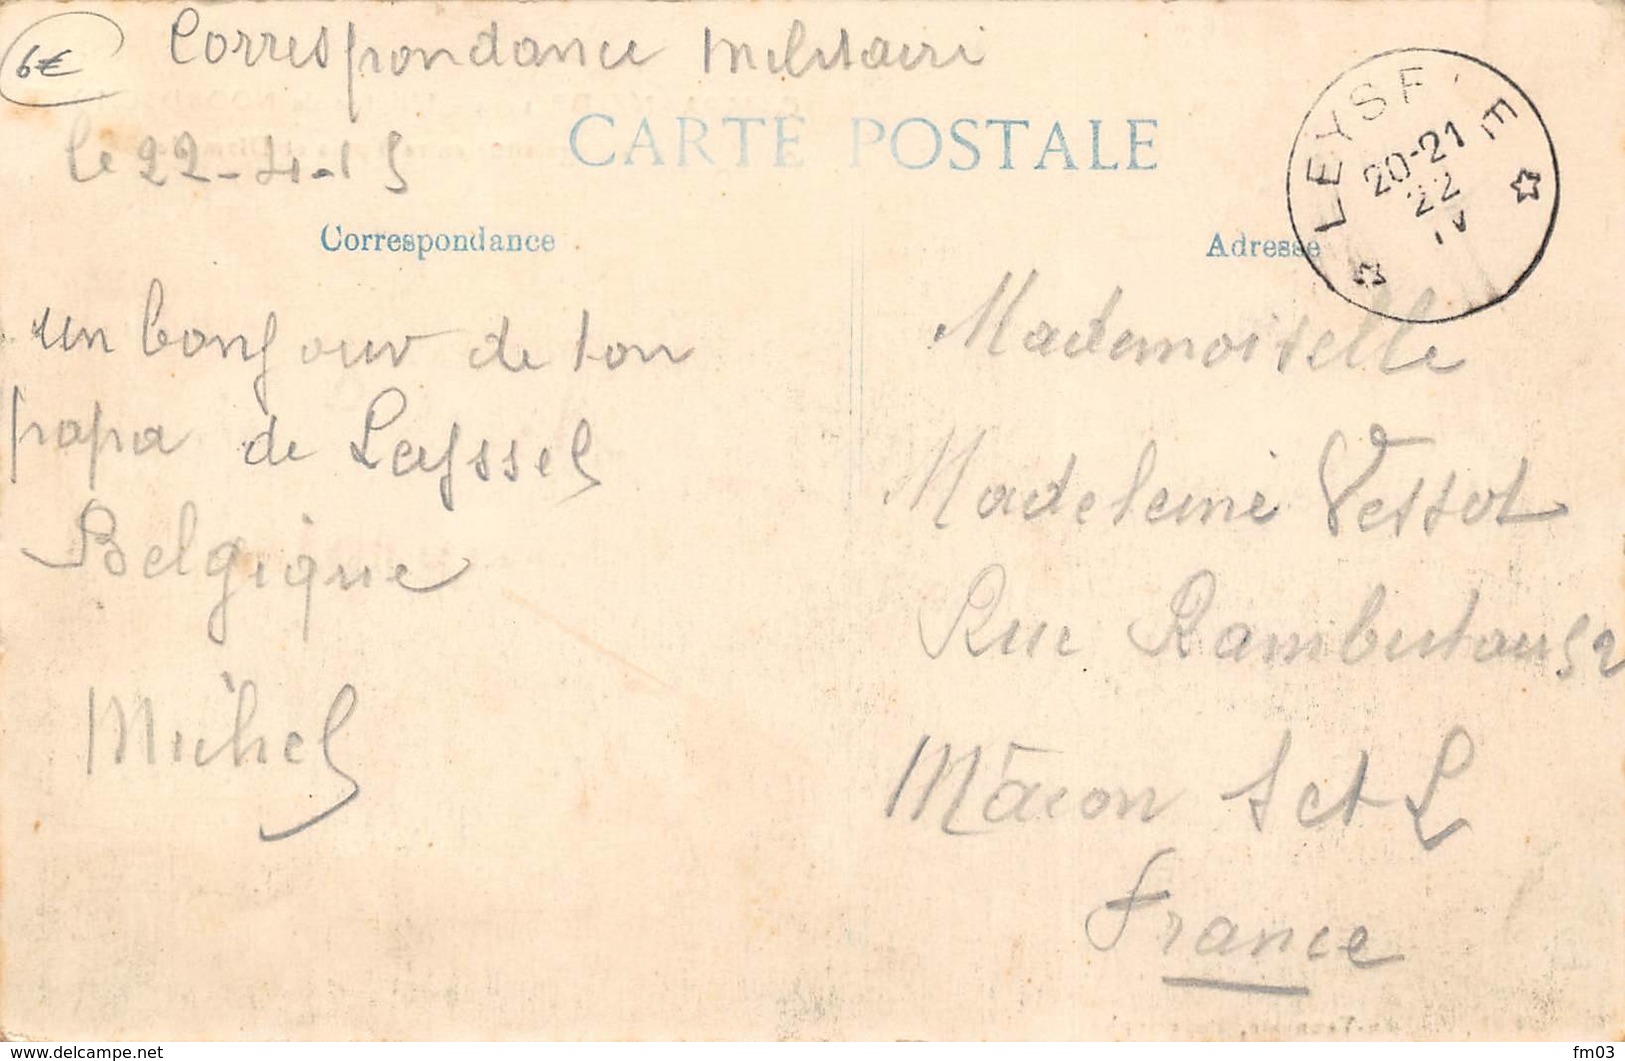 6€
Correspondance militaire
le 22-4-15
CARTE POSTALE
LEYS E
20-21
22
IV
Correspondance
Adresse
un bonjour de ton
papa de Leyssel
Belgique
Michel
Mademoiselle
Madeleine Vessot
Rue Rambutau 52
Mâcon S et L
France
delcampe.net
fm03